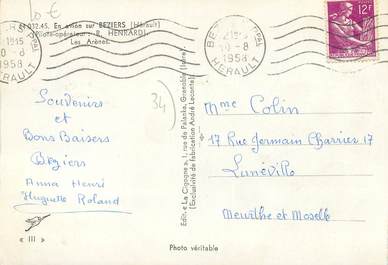 10€
34 032.45. En avion sur BEZIERS (Hérault)
(Pilote-opérateur : R. HENRARD)
Les Arènes.
2115
10-8
1958
HERAULT
BEZIERS
2115
10-8
1958
HERAULT
12F
Souvenirs
et
Bons Baisers
Béziers
Anna Henri
Huguette Roland
34
Edit. « La Cigogne », 1, rue de Palanka, Grenoble (Isère)
(Exclusivité de fabrication André Leconte)
Mme Colin
17 Rue Germain Charrier 17
Lunéville
Meurthe et Moselle
« III »
Photo véritable